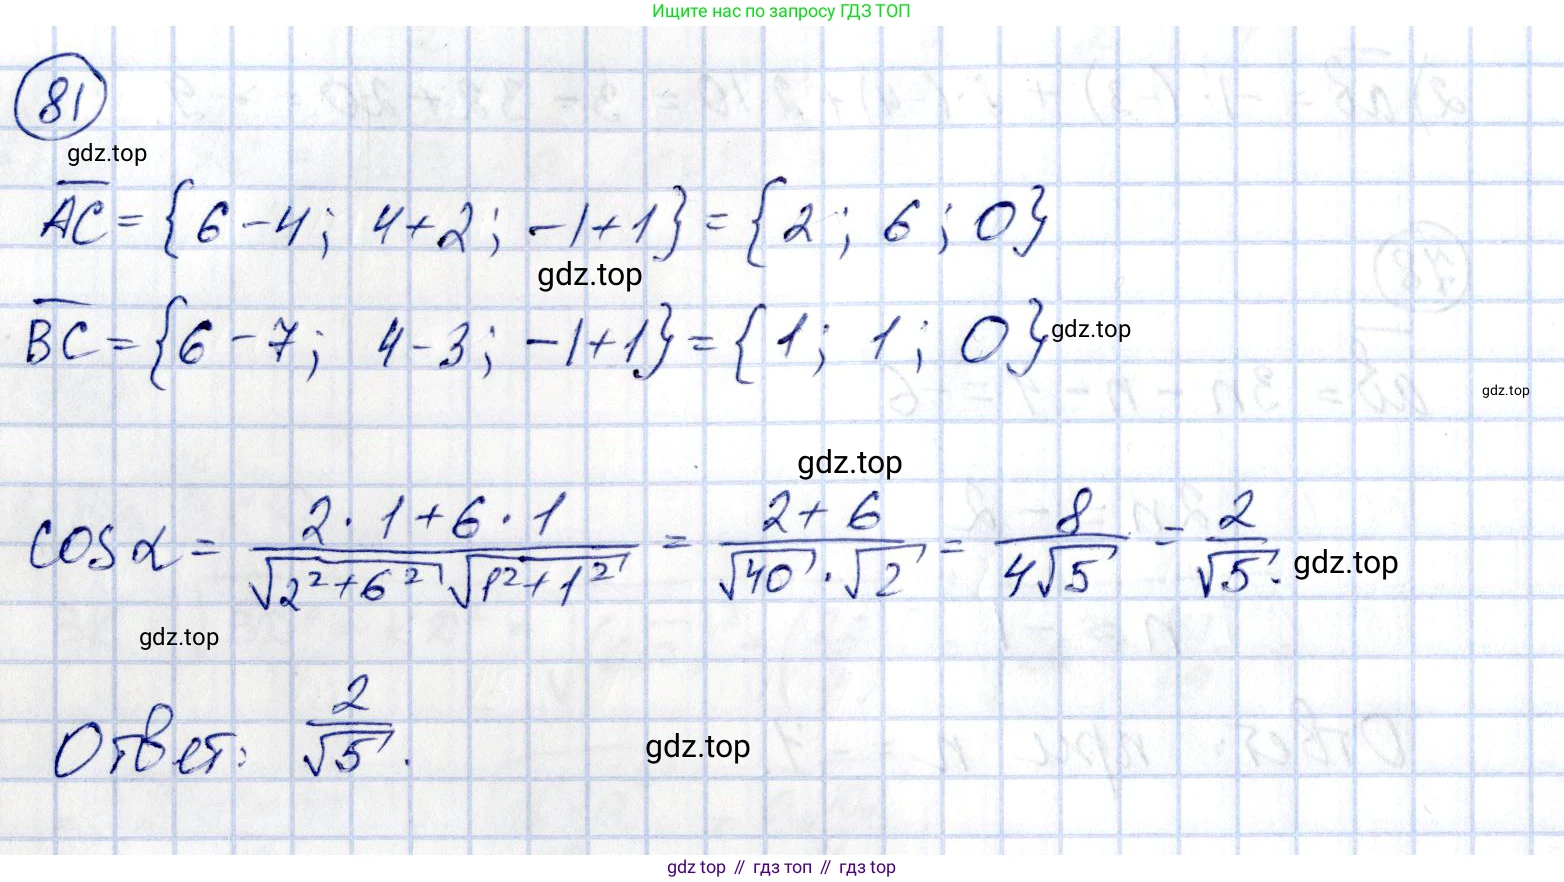 Ищите нас по запросу ГДЗ ТОП
81
gdz.top
AC = {6 - 4; 4 + 2; -1 + 1} = {2; 6; 0}
gdz.top
BC = {6 - 7; 4 - 3; -1 + 1} = {1; 1; 0}
gdz.top
gdz.top
gdz.top
cos α = (2 · 1 + 6 · 1) / (√(2² + 6²) √(1² + 1²)) = (2 + 6) / (√40 · √2) = 8 / (4√5) = 2 / √5.
gdz.top
gdz.top
Ответ: 2 / √5.
gdz.top
gdz top // гдз топ // гдз top